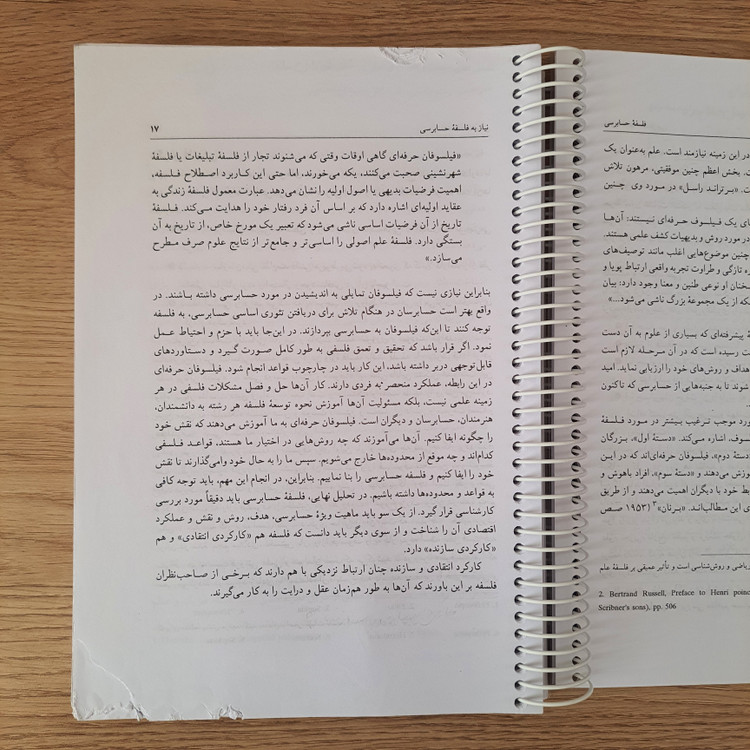 نیاز به فلسفهٔ حسابرسی ۱۷
«فیلسوفان حرفه‌ای گاهی اوقات وقتی که می‌شنوند تجار از فلسفهٔ تبلیغات یا فلسفهٔ
شهرنشینی صحبت می‌کنند، یکه می‌خورند، اما حتی این کاربرد اصطلاح فلسفه،
اهمیت فرضیات بدیهی یا اصول اولیه را نشان می‌دهد. عبارت معمول فلسفهٔ زندگی به
عقاید اولیه‌ای اشاره دارد که بر اساس آن فرد رفتار خود را هدایت می‌کند. فلسفهٔ
تاریخ از آن فرضیات اساسی ناشی می‌شود که تعبیر یک مورخ خاص، از تاریخ به آن
بستگی دارد. فلسفهٔ علم اصولی را اساسی‌تر و جامع‌تر از نتایج علوم صرف مطرح
می‌سازد.»
بنابراین نیازی نیست که فیلسوفان تمایلی به اندیشیدن در مورد حسابرسی داشته باشند. در
واقع بهتر است حسابرسان در هنگام تلاش برای دریافتن تئوری اساسی حسابرسی، به فلسفه
توجه کنند تا این‌که فیلسوفان به حسابرسی بپردازند. در این‌جا باید با حزم و احتیاط عمل
نمود. اگر قرار باشد که تحقیق و تعمق فلسفی به طور کامل صورت گیرد و دستاوردهای
قابل‌توجهی دربر داشته باشد، این کار باید در چارچوب قواعد انجام شود. فیلسوفان حرفه‌ای
در این رابطه، عملکرد منحصر به فردی دارند. کار آن‌ها حل و فصل مشکلات فلسفی در هر
زمینه علمی نیست، بلکه مسئولیت آن‌ها آموزش نحوه توسعهٔ فلسفه هر رشته به دانشمندان،
هنرمندان، حسابرسان و دیگران است. فیلسوفان حرفه‌ای به ما آموزش می‌دهند که نقش خود
را چگونه ایفا کنیم. آن‌ها می‌آموزند که چه روش‌هایی در اختیار ما هستند، قواعد فلسفی
کدام‌اند و چه موقع از محدوده‌ها خارج می‌شویم. سپس ما را به حال خود وامی‌گذارند تا نقش
خود را ایفا کنیم و فلسفه حسابرسی را بنا نماییم. بنابراین، در انجام این مهم، باید توجه کافی
به قواعد و محدوده‌ها داشته باشیم. در تحلیل نهایی، فلسفهٔ حسابرسی باید دقیقاً مورد بررسی
کارشناسی قرار گیرد. از یک سو باید ماهیت ویژهٔ حسابرسی، هدف، روش و نقش و عملکرد
اقتصادی آن را شناخت و از سوی دیگر باید دانست که فلسفه هم «کارکردی انتقادی» و هم
«کارکردی سازنده» دارد.
کارکرد انتقادی و سازنده چنان ارتباط نزدیکی با هم دارند که برخی از صاحب‌نظران
فلسفه بر این باورند که آن‌ها به طور هم‌زمان عقل و درایت را به کار می‌گیرند.
فلسفهٔ حسابرسی
در این زمینه نیازمند است. علم به‌عنوان یک
ت. بخش اعظم چنین موفقیتی، مرهون تلاش
ت. «برتراند راسل» در مورد وی چنین
های یک فیلسوف حرفه‌ای نیستند: آن‌ها
در مورد روش و بدیهیات کشف علمی هستند.
چنین موضوع‌هایی اغلب مانند توصیف‌های
ه تازگی و طراوت تجربه واقعی ارتباط پویا و
سخنان او نوعی طنین و معنا وجود دارد: بیان
که از یک مجموعهٔ بزرگ ناشی می‌شود...»
ۀ پیشرفته‌ای که بسیاری از علوم به آن دست
ت رسیده است که در آن مرحله لازم است
هداف و روش‌های خود را ارزیابی نماید. امید
شوند تا به جنبه‌هایی از حسابرسی که تاکنون
ورد موجب ترغیب بیشتر در مورد فلسفهٔ
سوف، اشاره می‌کند. «دستهٔ اول»، بزرگان
دستهٔ دوم»، فیلسوفان حرفه‌ای‌اند که در این
وزش می‌دهند و «دستهٔ سوم»، افراد باهوش و
بط خود با دیگران اهمیت می‌دهند و از طریق
ی این مطالب‌اند. «برنان»۳ (۱۹۵۳ صص
ریاضی و روش‌شناسی است و تأثیر عمیقی بر فلسفهٔ علم
2. Bertrand Russell, Preface to Henri poinc
Scribner's sons), pp. 506